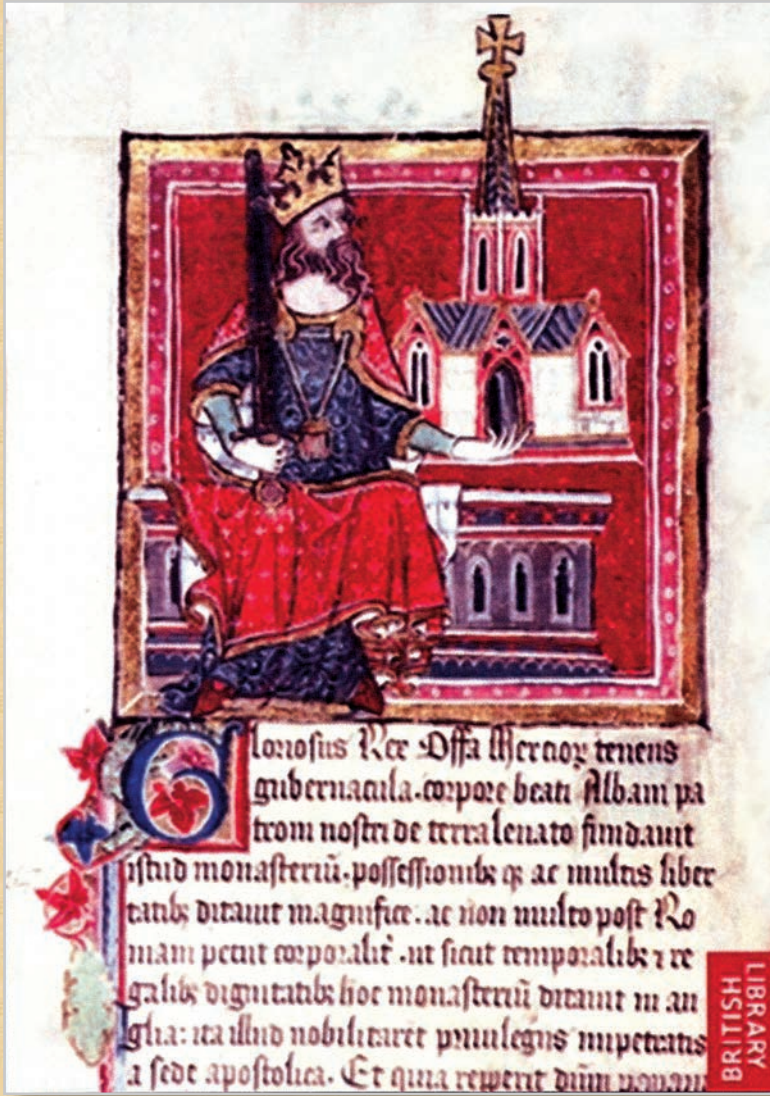 Gloriosus Rex Offa Mercioꝝ tenens
gubernacula. corpore beati Albani pa
troni nostri de terra leuato fundauit
istud monasteriū. possessionibꝫ qꝫ ac multis liber
tatibꝫ ditauit magnifice. ac non multo post Ro
mam petiit corporalit̉. ut sicut temporalibꝫ ⁊ re
galibꝫ dignitatibꝫ hoc monasteriū ditauit in an
glia: ita illud nobilitaret priuilegiis impetratis
a sede apostolica. Et quia repperit dñm papam
BRITISH
LIBRARY